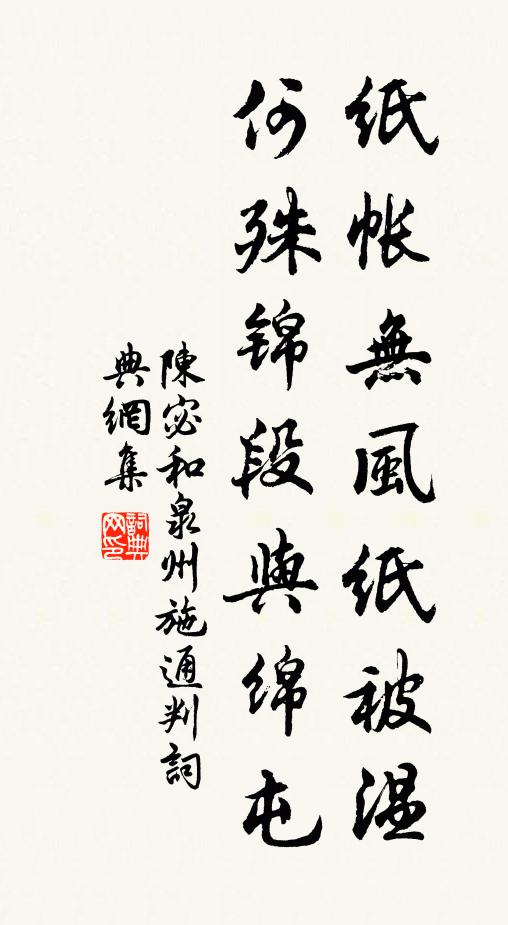 紙帳無風紙被温
何殊錦段與綿屯
陳宓和泉州施通判詞
典網集
詞典
网印